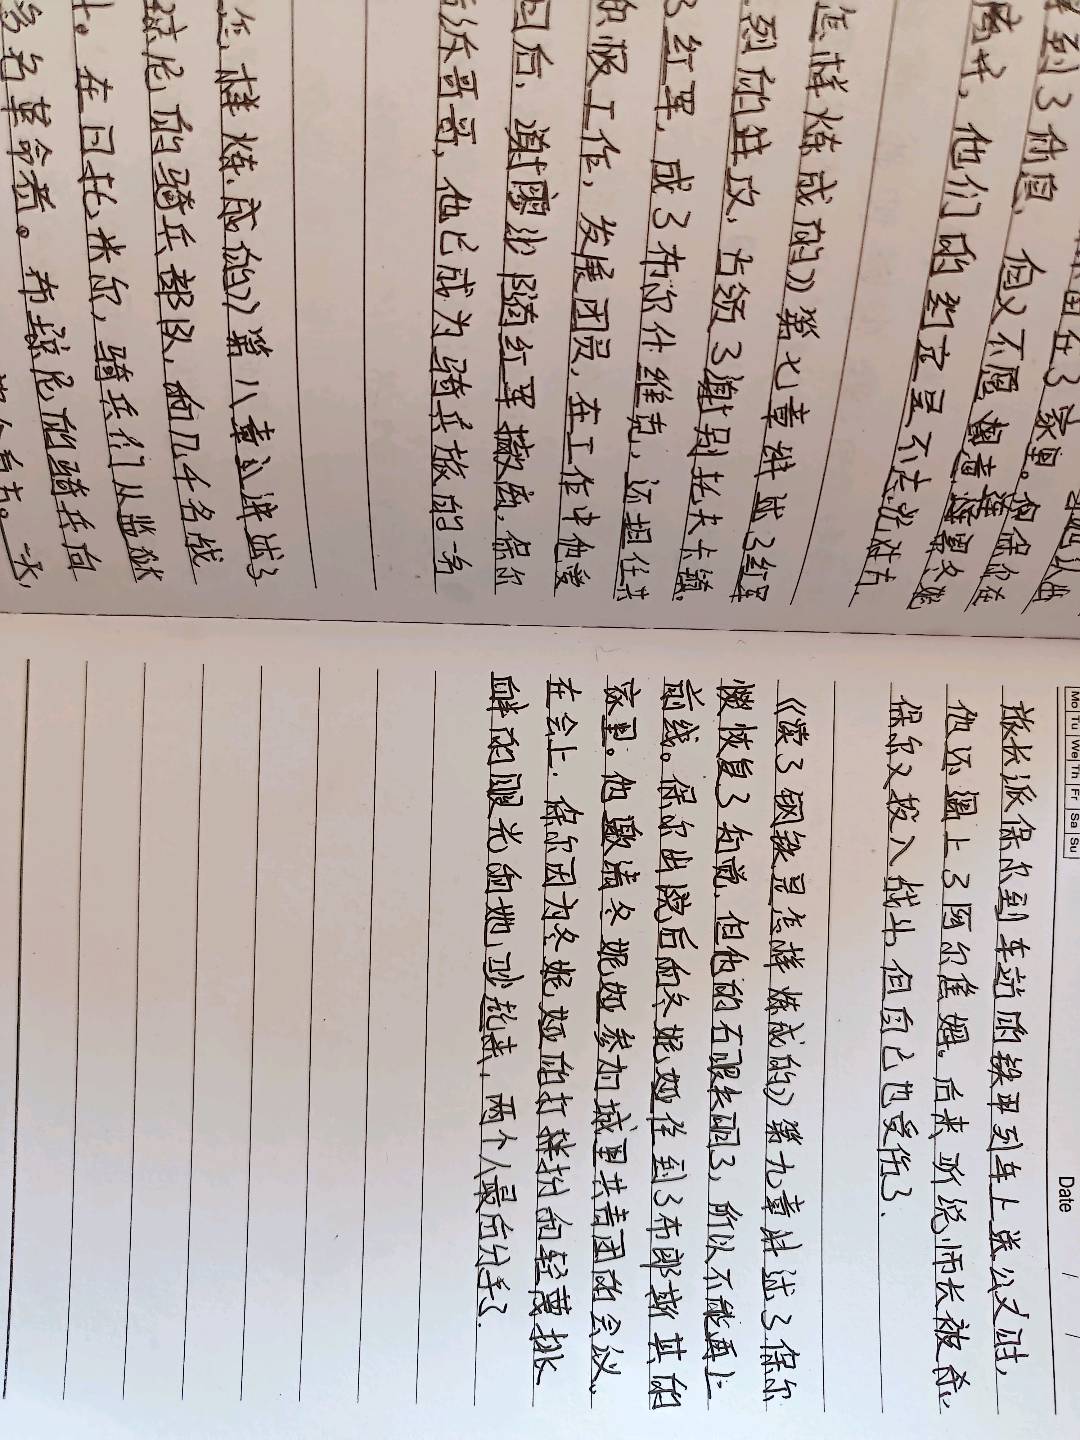 到了休息，但又不愿
离开，他们的约定是不去
怎样炼成的》第七章讲述了红军
烈的进攻，占领了谢别托夫卡镇。
了红军，成了布尔什维克，还担任共
积极工作，发展团员，在工作中他受
后，谢廖沙随红军撤离，保尔
诉哥哥，他已成为骑兵旅的一名
怎样炼成的》第八章讲述了
琼尼的骑兵部队，和几千名战
在日托米尔，骑兵们从监狱
多名革命者。布琼尼的骑兵向
Mo Tu We Th Fr Sa Su
Date / /
旅长派保尔到车站的铁甲列车上送公文时，
他还遇上了阿尔焦姆。后来听说师长被杀，
保尔又投入战斗，但自己也受伤了.
《读了钢铁是怎样炼成的》第九章讲述了保尔
慢恢复了知觉，但他的右眼失明了，所以不能再上
前线。保尔出院后和冬妮娅住到了布郎斯其的
家里。他邀请冬妮娅参加城里共青团的会议。
在会上，保尔因为冬妮娅的打扮和轻蔑挑
衅的眼光和她吵起来，两个人最后分手了.